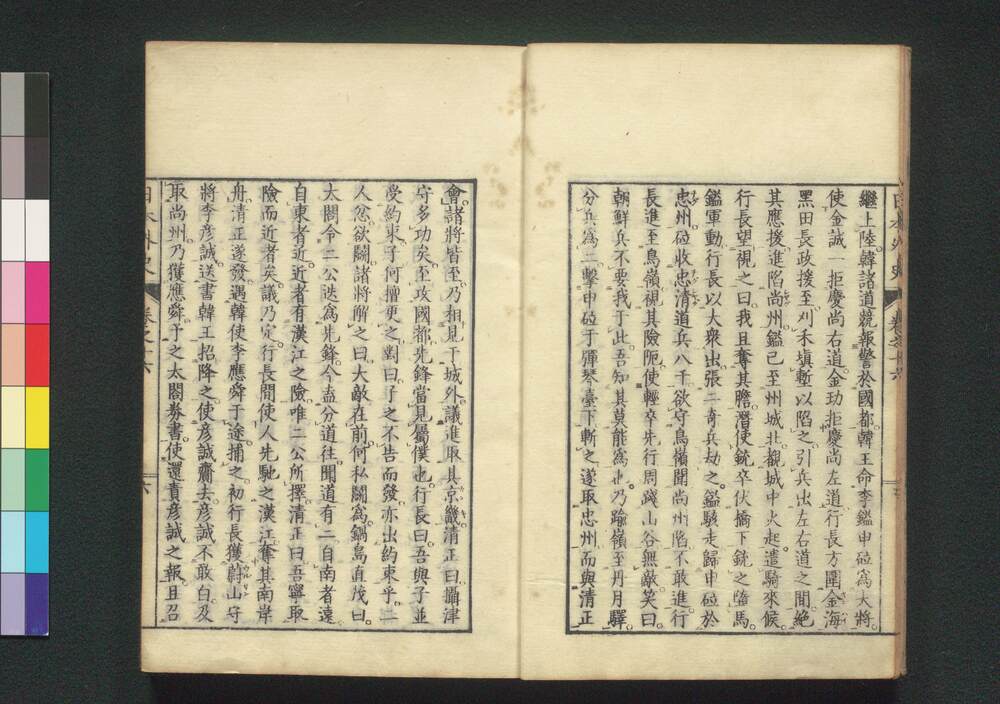 日本外史 卷之十六
繼上陸。韓諸道競報警於國都。韓王命李鎰申砬爲大將。
使金誠一拒慶尚右道。金玏拒慶尚左道。行長方圍金海
黑田長政援至。刈禾塡塹以陷之。引兵出左右道之間。絶
其應援。進陷尚州。鎰已至州城北。覩城中火起。遣騎來候。
行長望視之曰。我且奪其膽。潛使銃卒伏橋下。銃之墮馬。
鎰軍動。行長以大衆出。張二奇兵劫之。鎰駭走歸申砬於
忠州。砬收忠清道兵八千。欲守鳥嶺。聞尚州陷。不敢進。行
長進至鳥嶺。視其險阨。使輕卒先行。周踐山谷。無敵。笑曰。
朝鮮兵不要我于此。吾知其莫能爲也。乃踰嶺至丹月驛。
分兵爲二。擊申砬于彈琴臺下。斬之。遂取忠州。而與清正
會。諸將皆至。乃相見于城外。議進取其京畿。清正曰。攝津
守多功矣。至攻國都。先鋒當見屬僕也。行長曰。吾與子並
受約束。子何擅更之。對曰。子之不告而發。亦出約束乎。二
人忿欲鬭。諸將解之曰。大敵在前。何私鬭爲。鍋島直茂曰。
太閤令二公迭爲先鋒。今盍分道往。聞道有二。自南者遠。
自東者近。近者有漢江之險。唯二公所擇。清正曰。吾寧取
險而近者矣。議乃定。行長閒使人先馳之漢江。奪其南岸
舟。清正遂發。遇韓使李應舜于途。捕之。初行長獲蔚山守
將李彥誠。送書韓王招降之。使彥誠齎去。彥誠不敢白。及
取尚州。乃獲應舜。予之太閤券書。使還責彥誠之報。且召
日本外史 卷之十六 六